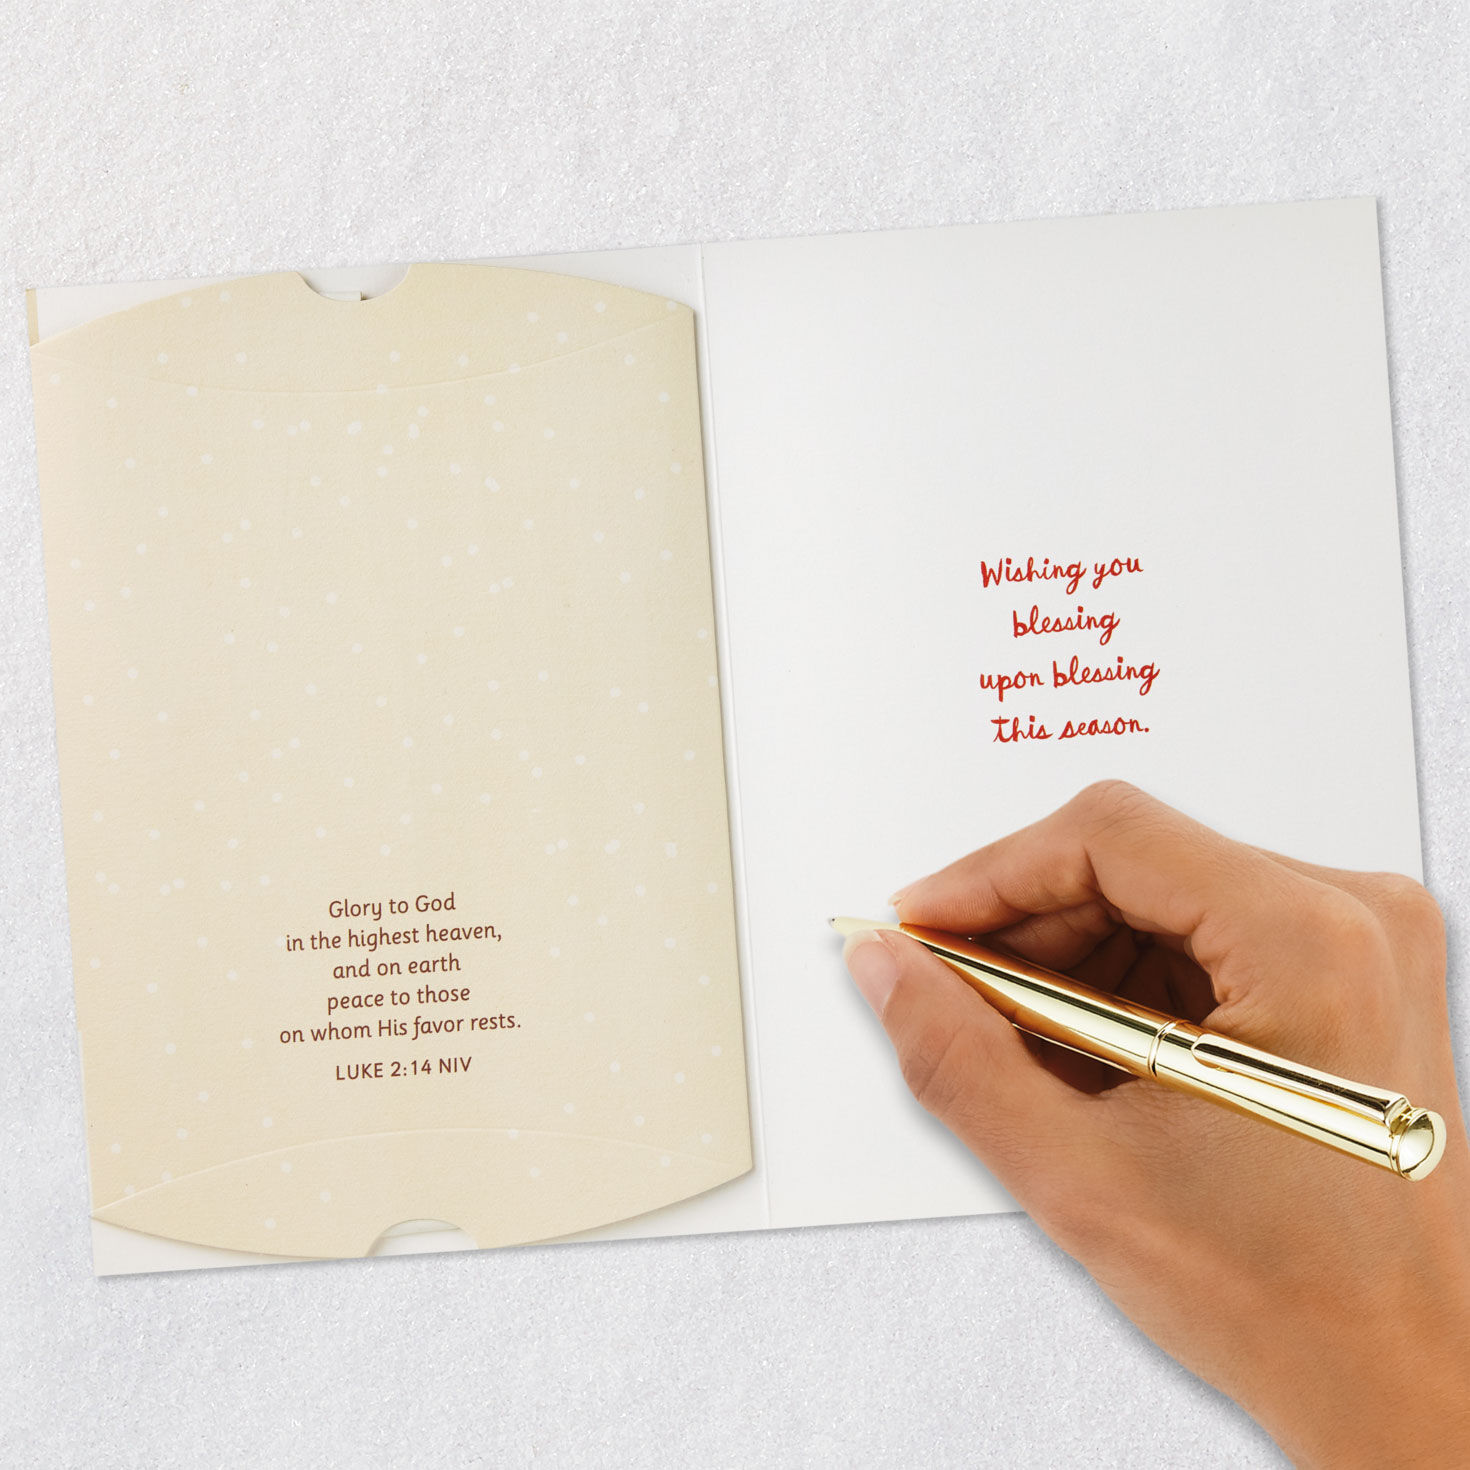 Glory to God
in the highest heaven,
and on earth
peace to those
on whom His favor rests.
LUKE 2:14 NIV
Wishing you
blessing
upon blessing
this season.